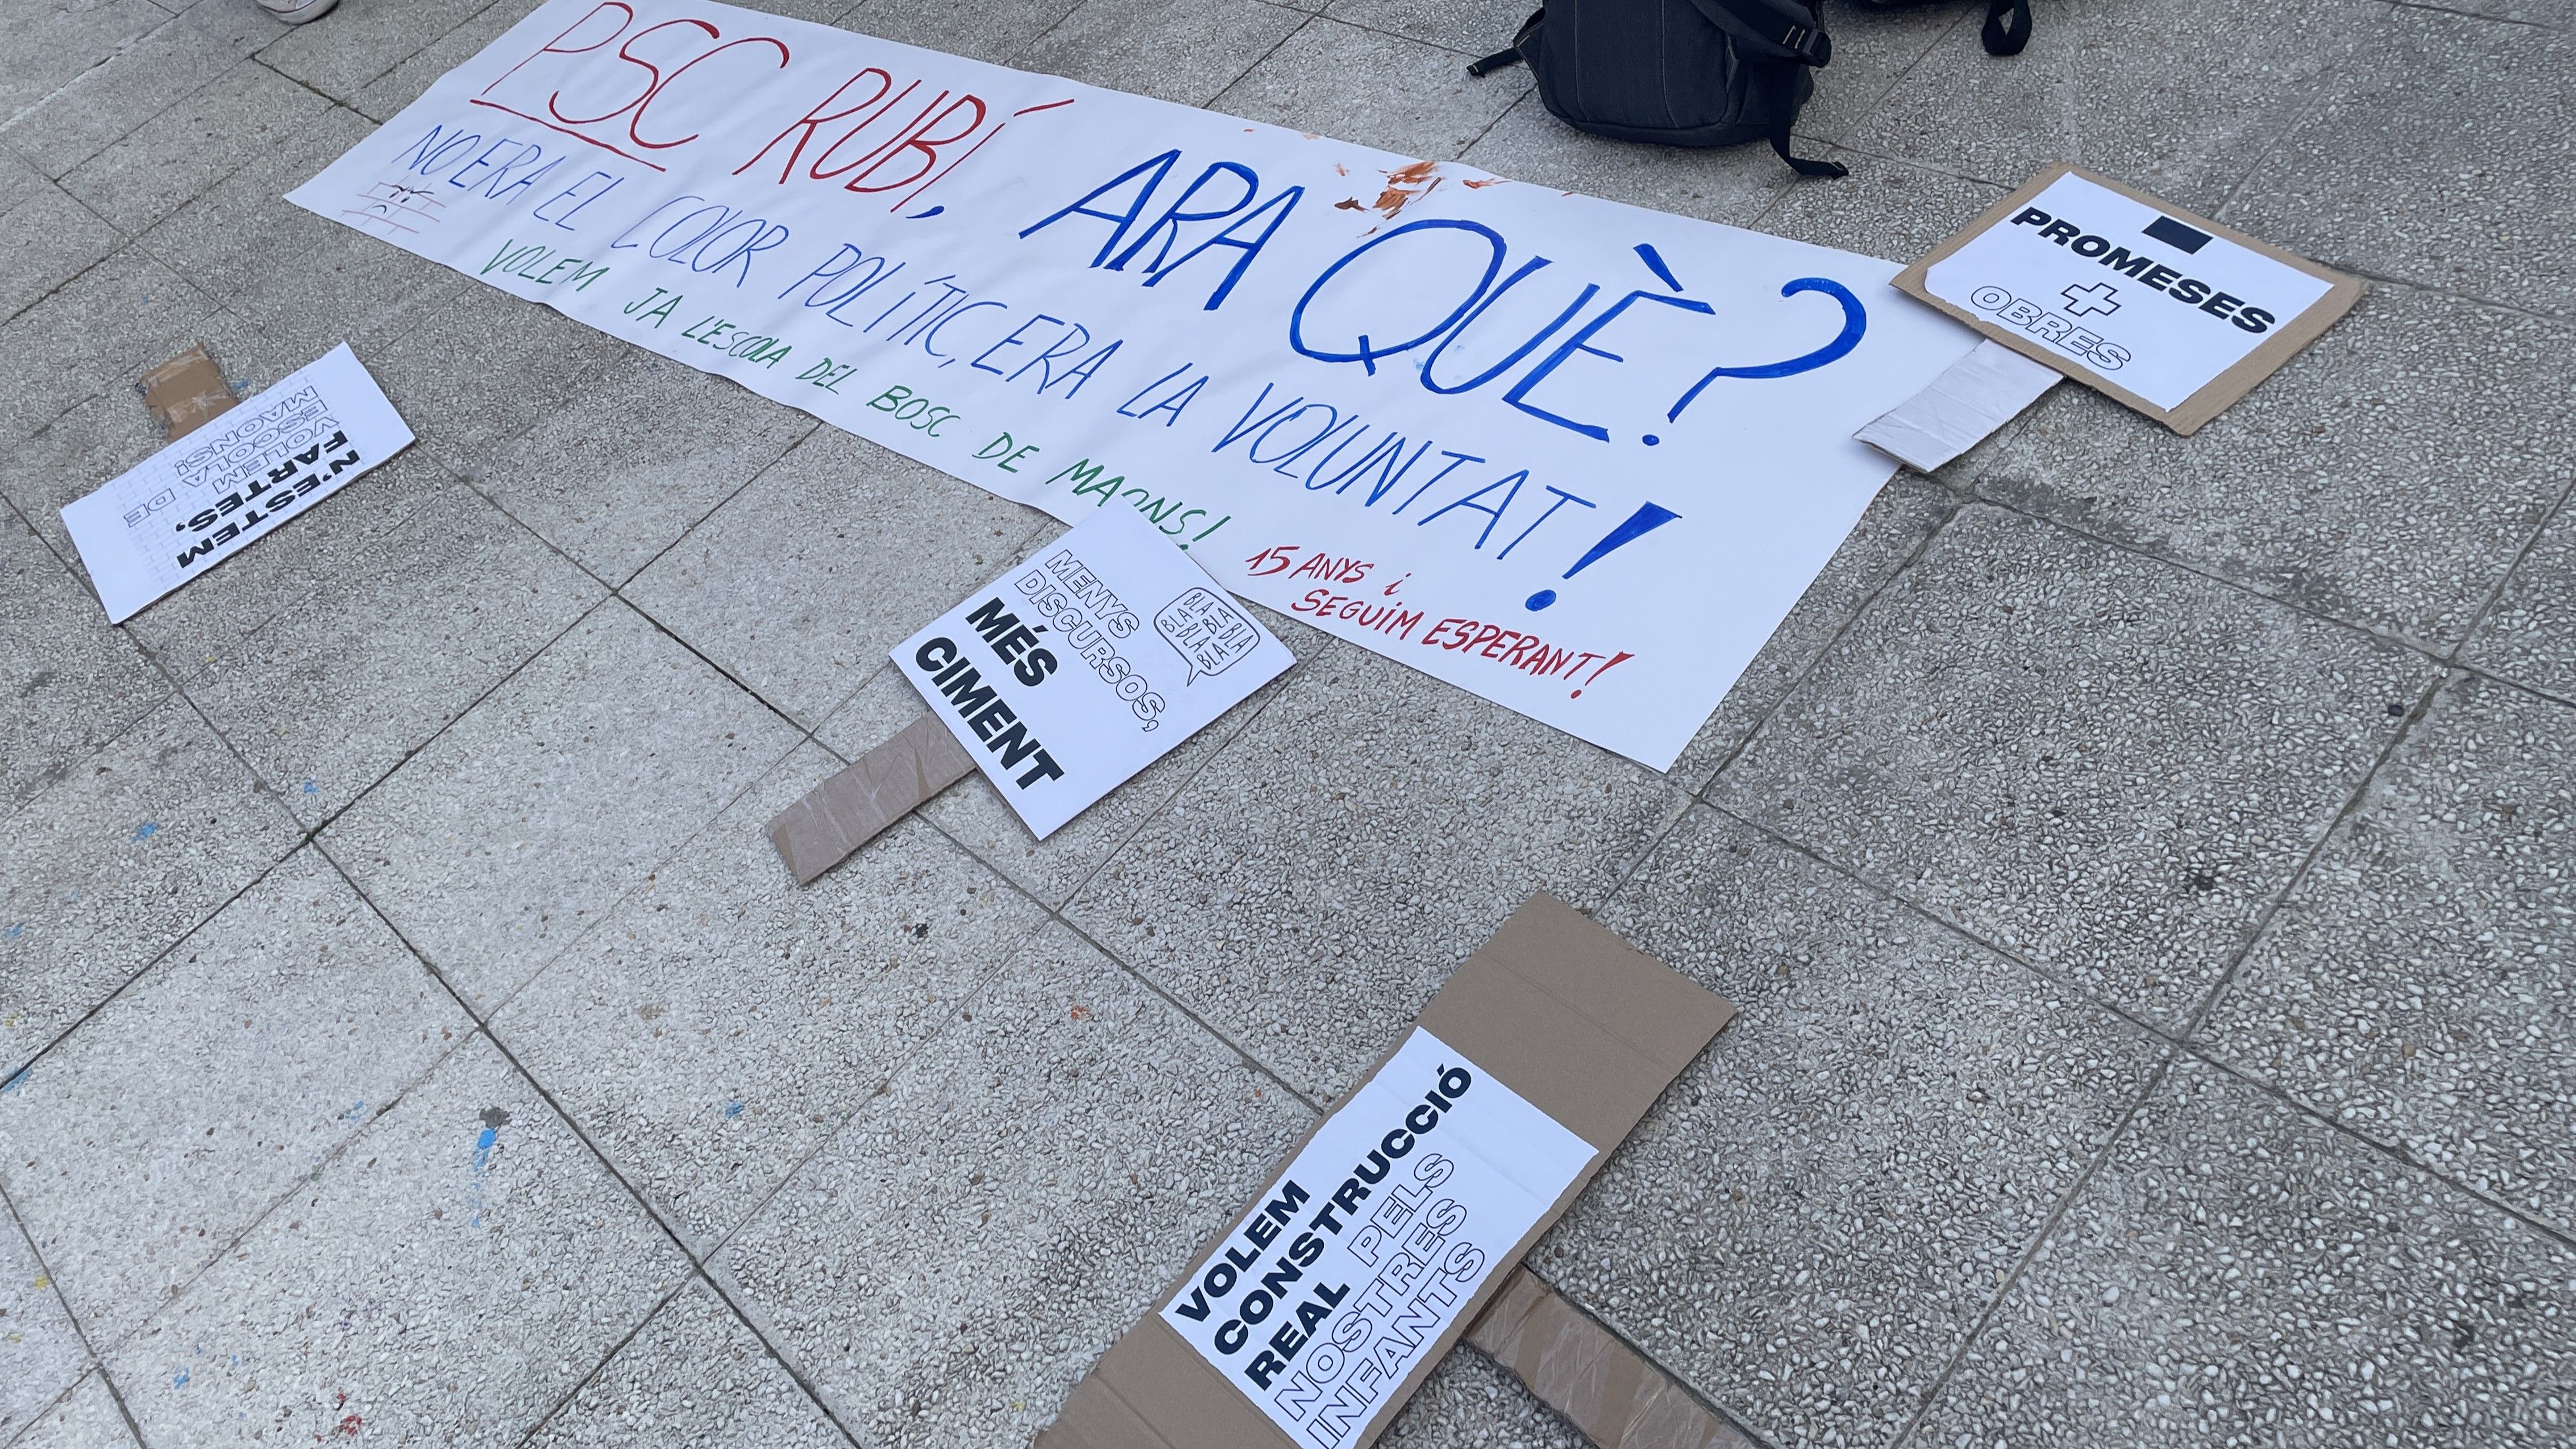 PSC RUBÍ, ARA QUÈ?
NO ERA EL COLOR POLÍTIC, ERA LA VOLUNTAT!
VOLEM JA L'ESCOLA DEL BOSC DE MAONS!
15 ANYS i
SEGUIM ESPERANT!
PROMESES
+
OBRES
N'ESTEM
FARTES,
VOLEM
ESCOLA DE
MAONS!
MENYS
DISCURSOS,
MÉS
CIMENT
BLA BLA
BLA BLA BLA
BLA BLA
VOLEM
CONSTRUCCIÓ
REAL PELS
NOSTRES
INFANTS